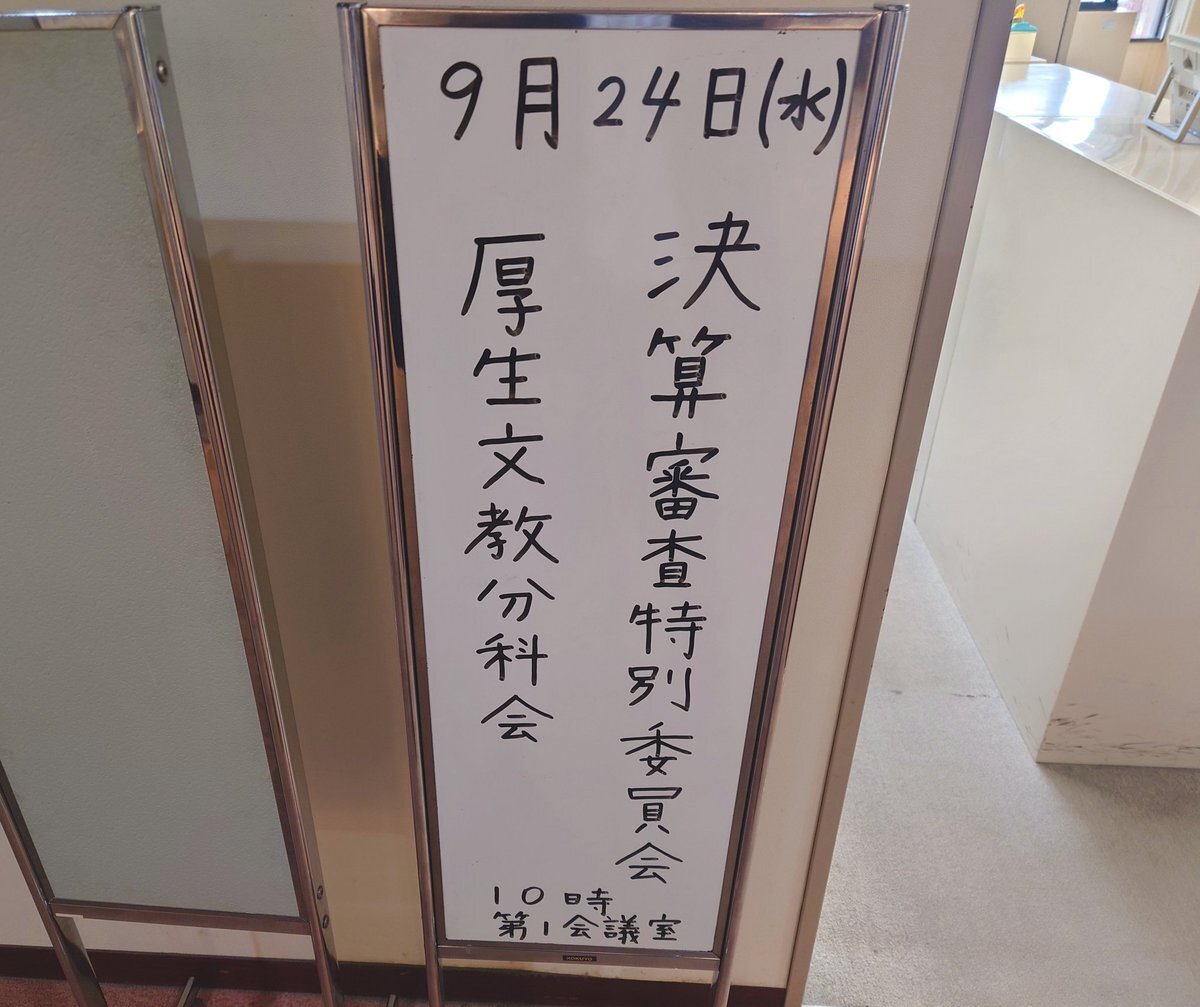 9月24日(水)
決算審査特別委員会
厚生文教分科会
10時
第1会議室
KOKUYO